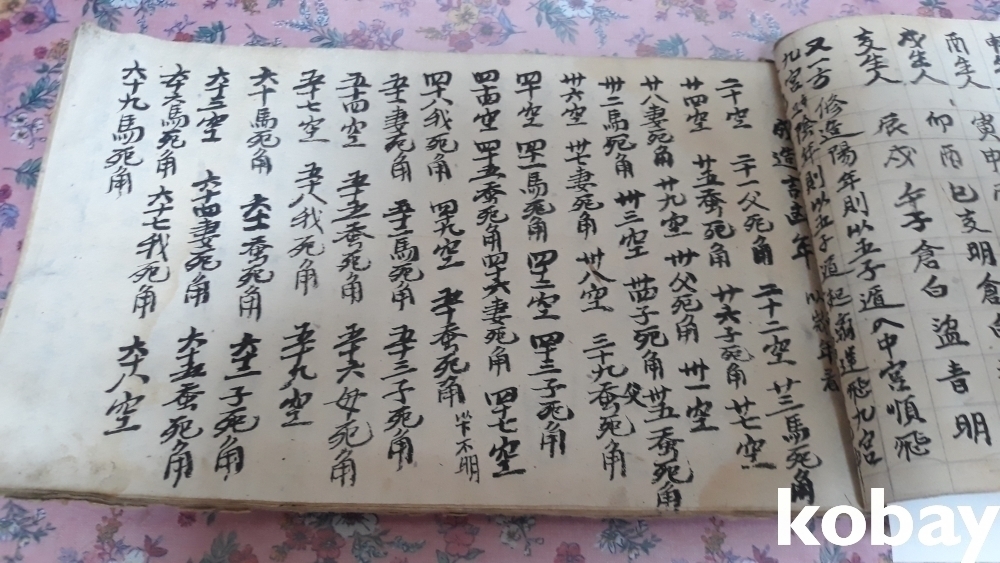 支生人 辰戌 午子倉白
又一方 修造陽年則以五子遁入中宮順飛
九宮 陰年則以五子遁起 飛九宮
造吉凶年
二十空 二十一父死角 二十二空 廿三馬死角
廿四空 廿五蚕死角 廿六子死角 廿七空
廿八妻死角 廿九空 卅父死角 卅一空
卅二馬死角 卅三空 卅四子死角 卅五蚕死角
父
卅六空 卅七妻死角 卅八空 三十九蚕死角
四十空 四十一馬死角 四十二空 四十三子死角
四十四空 四十五蚕死角 四十六妻死角 四十七空
四十八我死角 四十九空 五十蚕死角 以下不明
五十一妻死角 五十二馬死角 五十三子死角
五十四空 五十五蚕死角 五十六母死角
五十七空 五十八我死角 五十九空
六十馬死角 六十一蚕死角 六十二子死角
六十三空 六十四妻死角 六十五蚕死角
六十六馬死角 六十七我死角
六十八空
六十九馬死角
kobay